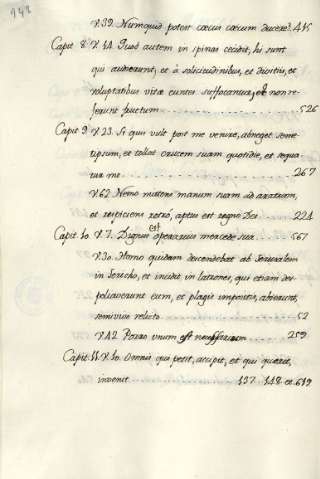 V.39. Numquid potest cæcus cæcum ducere? 415
Capit 8 V.14. Quod autem in spinas cecidit, hi sunt
qui audierunt, et à solicitudinibus, et divitiis, et
voluptatibus vitæ euntes suffocantur, et non re-
ferunt fructum - - - - - - - - - - - - - 526
Capit 9 V.23. Si quis vult post me venire, abneget seme-
tipsum, et tollat crucem suam quotidie, et sequa-
tur me - - - - - - - - - - - - - - - 267
V.62 Nemo mittens manum suam ad aratrum,
et respiciens retró, aptus est regno Dei - - - - 224
Capit. 10. V.7. Dignus est operarius mercede sua - - - - 567
V.30. Homo quidam descendebat ab Jerusalem
in Jericho, et incidit in latrones, qui etiam des-
poliaverunt eum, et plagis impositis, abierunt,
semivivo relicto - - - - - - - - - - - 52
V.42 Porro unum est necessarium - - - - 259
Capit. 11 V.10. Omnis qui petit, accipit, et qui quærit,
invenit - - - - - - - 137. 148 et 619